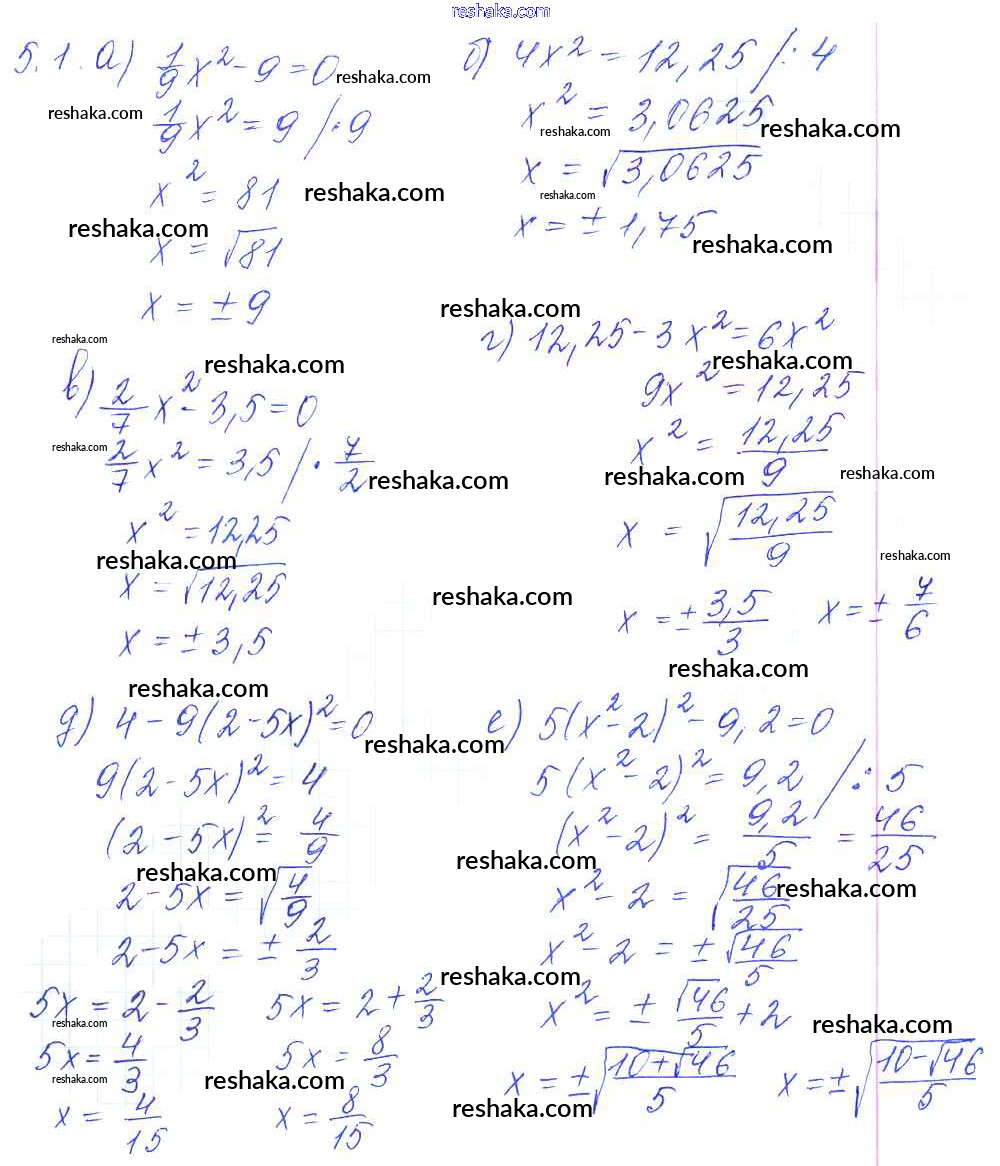 reshaka.com
5.1. а) 1/9 x² - 9 = 0 reshaka.com
reshaka.com 1/9 x² = 9 / : 9
x² = 81 reshaka.com
reshaka.com x = √81
x = ± 9
б) 4x² = 12,25 / : 4
x² = 3,0625 reshaka.com reshaka.com
x = √3,0625 reshaka.com
x = ± 1,75 reshaka.com
reshaka.com
reshaka.com
в) 2/7 x² - 3,5 = 0 reshaka.com
reshaka.com 2/7 x² = 3,5 / · 7/2 reshaka.com
x² = 12,25
reshaka.com
x = √12,25
x = ± 3,5
reshaka.com
г) 12,25 - 3x² = 6x²
reshaka.com
9x² = 12,25
x² = 12,25/9 reshaka.com reshaka.com
x = √(12,25/9) reshaka.com
reshaka.com
x = ± 3,5/3 x = ± 7/6
reshaka.com
д) 4 - 9(2 - 5x)² = 0 reshaka.com
9(2 - 5x)² = 4
(2 - 5x)² = 4/9
reshaka.com
2 - 5x = √(4/9)
2 - 5x = ± 2/3
5x = 2 - 2/3 5x = 2 + 2/3
reshaka.com
5x = 4/3 5x = 8/3
reshaka.com reshaka.com
x = 4/15 x = 8/15
е) 5(x² - 2)² - 9,2 = 0
5(x² - 2)² = 9,2 / : 5
(x² - 2)² = 9,2/5 = 46/25
reshaka.com
x² - 2 = √(46/25) reshaka.com
x² - 2 = ± √46/5
reshaka.com
x² = ± √46/5 + 2
reshaka.com
x = ± √((10 + √46)/5) x = ± √((10 - √46)/5)
reshaka.com